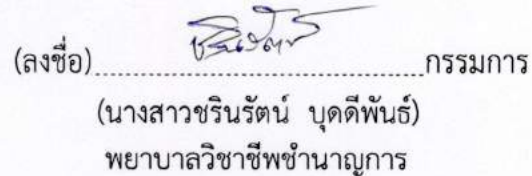 (ลงชื่อ)........................................กรรมการ
(นางสาวชรินรัตน์ บุดดีพันธ์)
พยาบาลวิชาชีพชำนาญการ